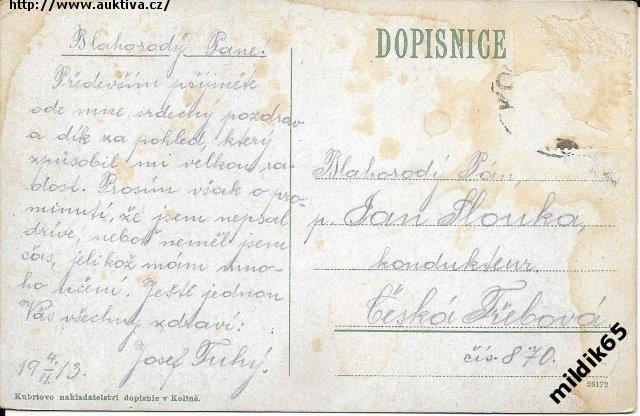 http://www.auktiva.cz/
Blahorodý Pane!
Především přijměte
ode mne srdečný pozdrav
a dík za pohled, který
způsobil mi velkou ra-
dost. Prosím však o pro-
minutí, že jsem nepsal
dříve, neboť neměl jsem
čas, jelikož mám mno-
ho učení. Ještě jednou
Vás všechny zdraví:
Josef Tuhý.
19 4./II. 13.
Kubrtovo nakladatelství dopisnic v Kolíně.
DOPISNICE
Blahorodý Pán,
p. Jan Slouka,
kondukteur.
Česká Třebová
čís. 870.
26172
mildik65